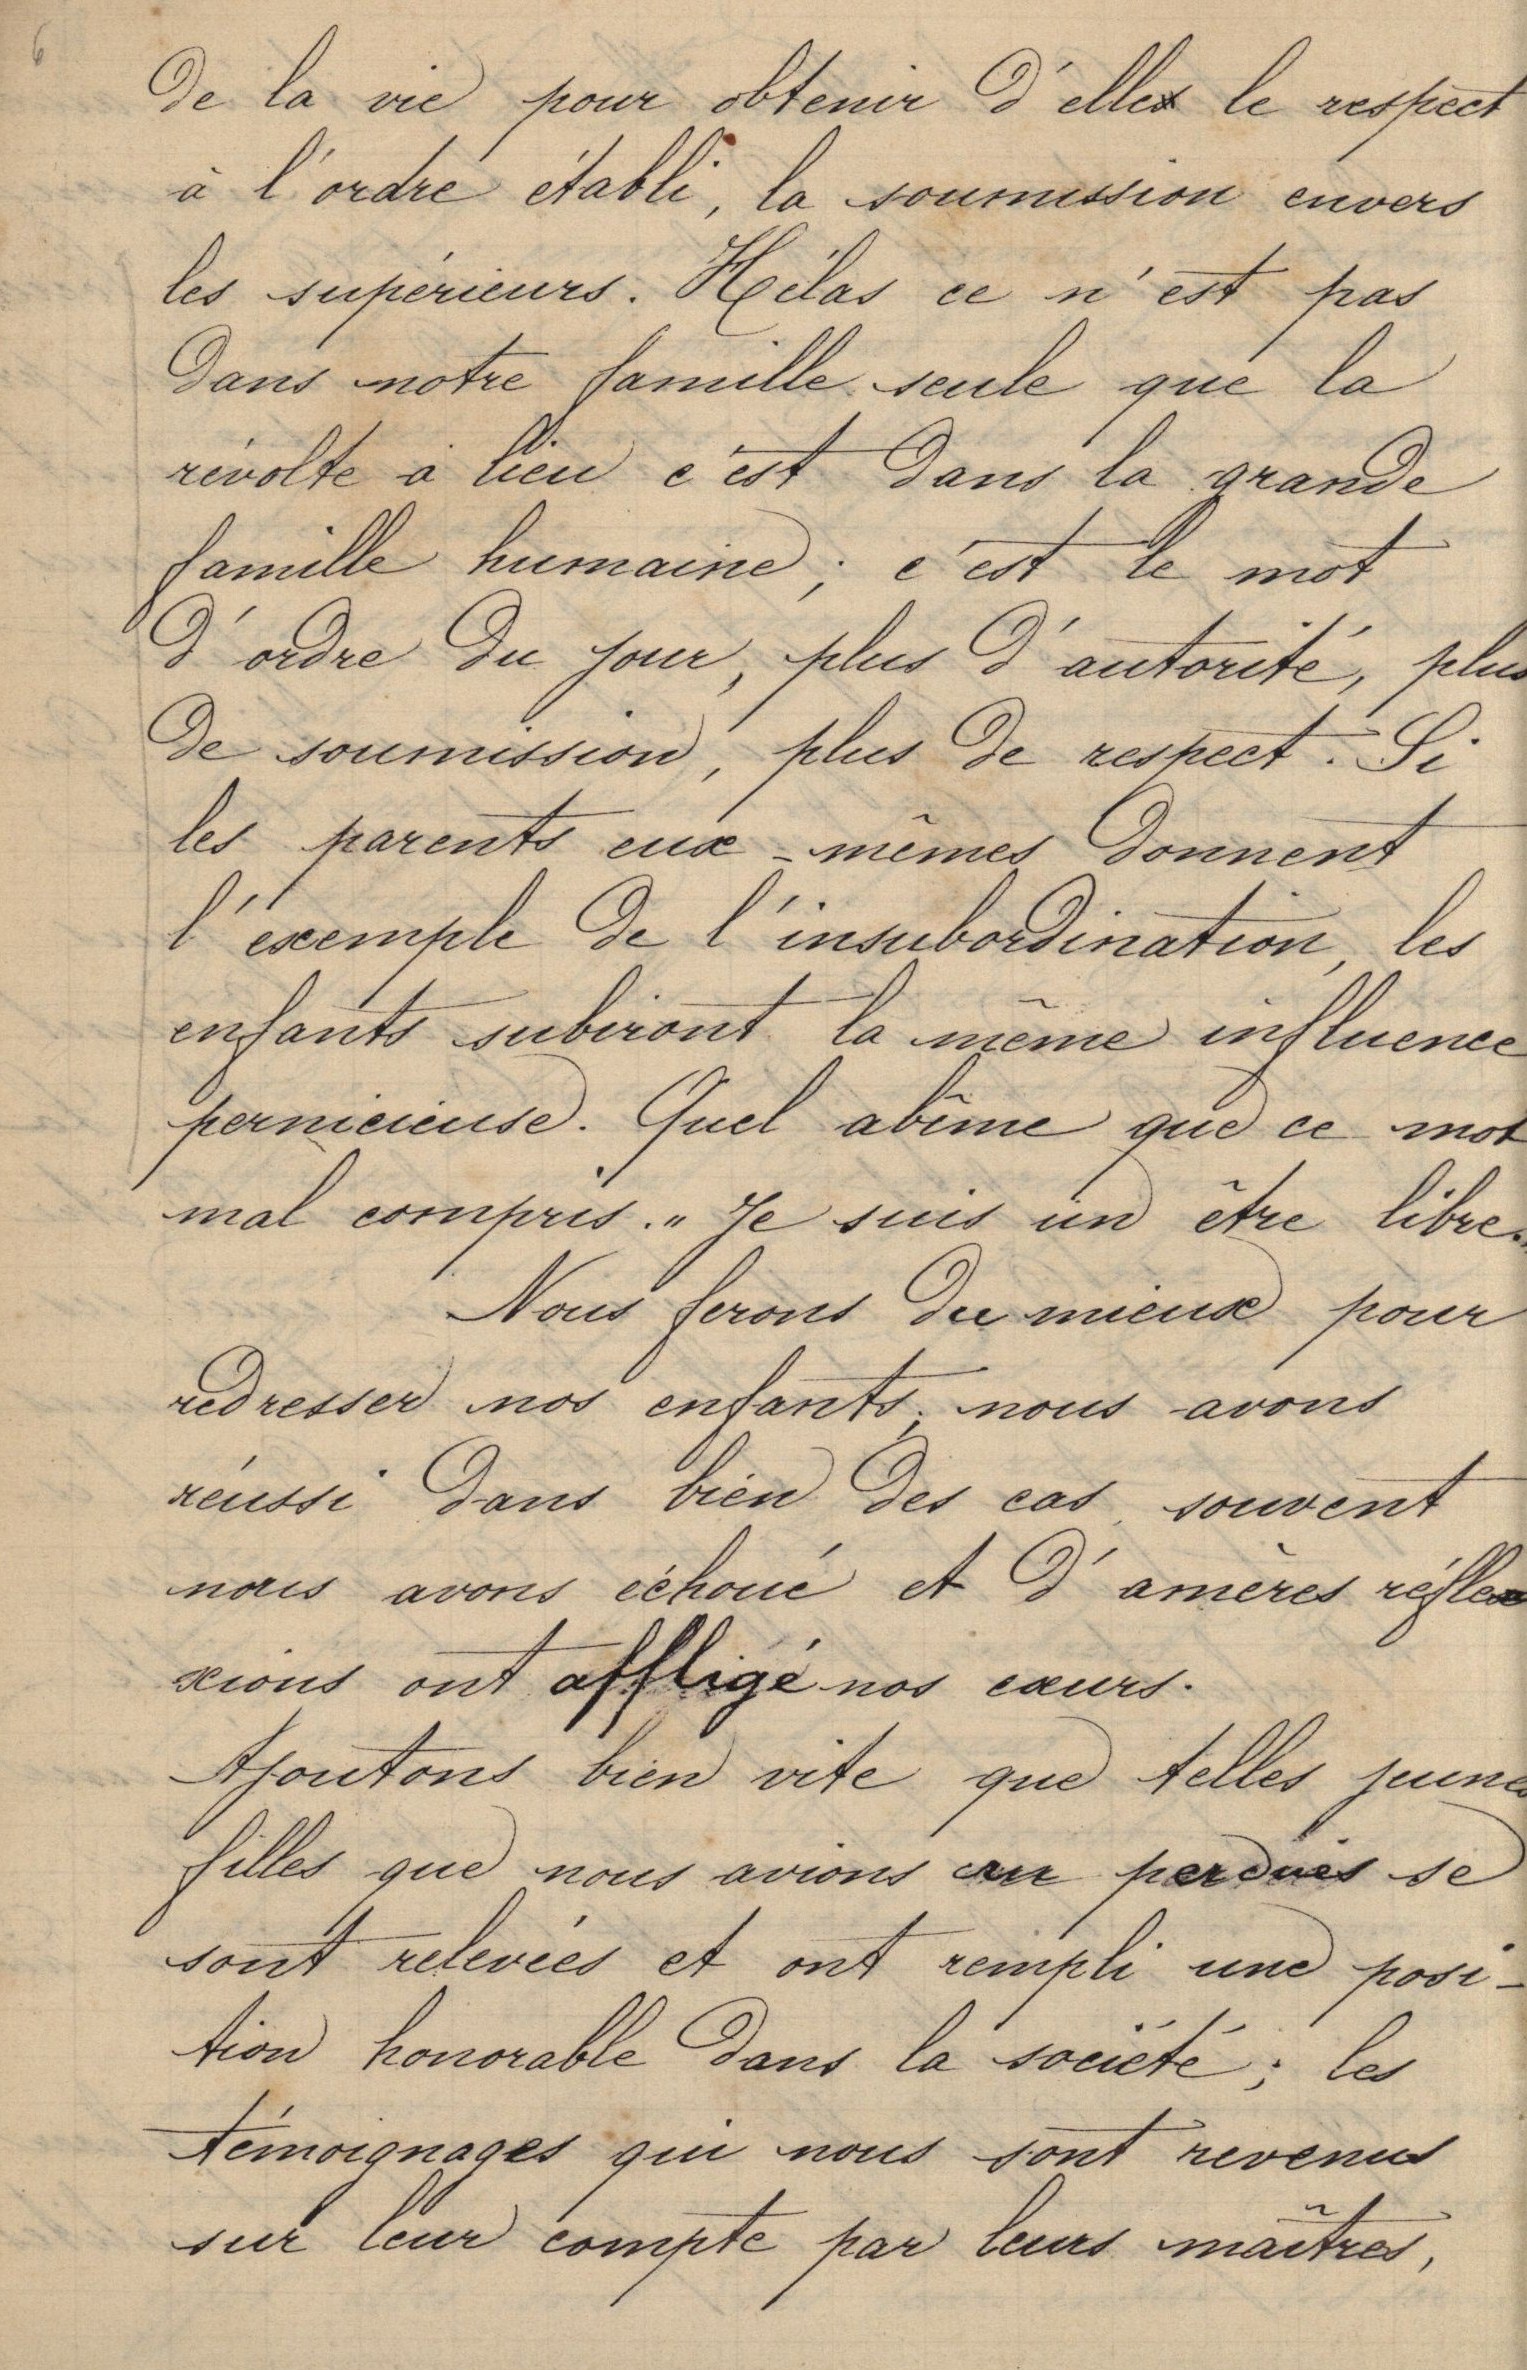 6
de la vie pour obtenir d'elles le respect
à l'ordre établi, la soumission envers
les supérieurs. Hélas ce n'est pas
dans notre famille seule que la
révolte a lieu c'est dans la grande
famille humaine ; c'est le mot
d'ordre du jour, plus d'autorité, plus
de soumission, plus de respect. Si
les parents eux-mêmes donnent
l'exemple de l'insubordination, les
enfants subiront la même influence
pernicieuse. Quel abîme que ce mot
mal compris. " Je suis un être libre."
Nous ferons du mieux pour
redresser nos enfants; nous avons
réussi dans bien des cas, souvent
nous avons échoué et d'amères réfle
xions ont affligé nos cœurs.
Ajoutons bien vite que telles jeunes
filles que nous avions cru perdues se
sont relevées et ont rempli une posi-
tion honorable dans la société ; les
témoignages qui nous sont revenus
sur leur compte par leurs maîtres,